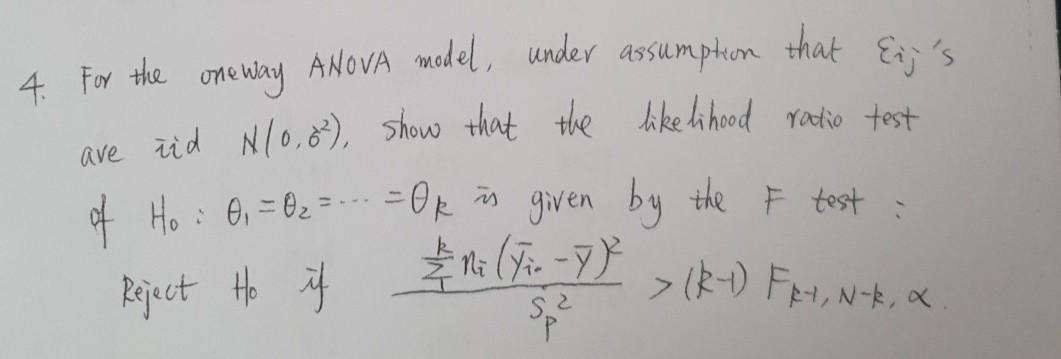 4. For the oneway ANOVA model, under assumption that εij's
are iid N(0,σ²), show that the likelihood ratio test
of H₀ : θ₁ = θ₂ = ··· = θk is given by the F test :
Reject H₀ if \frac{\sum_{1}^{k} n_i (\bar{y}_{i\cdot} - \bar{\bar{y}})^2}{S_p^2} > (k-1) F_{k-1, N-k, α}.